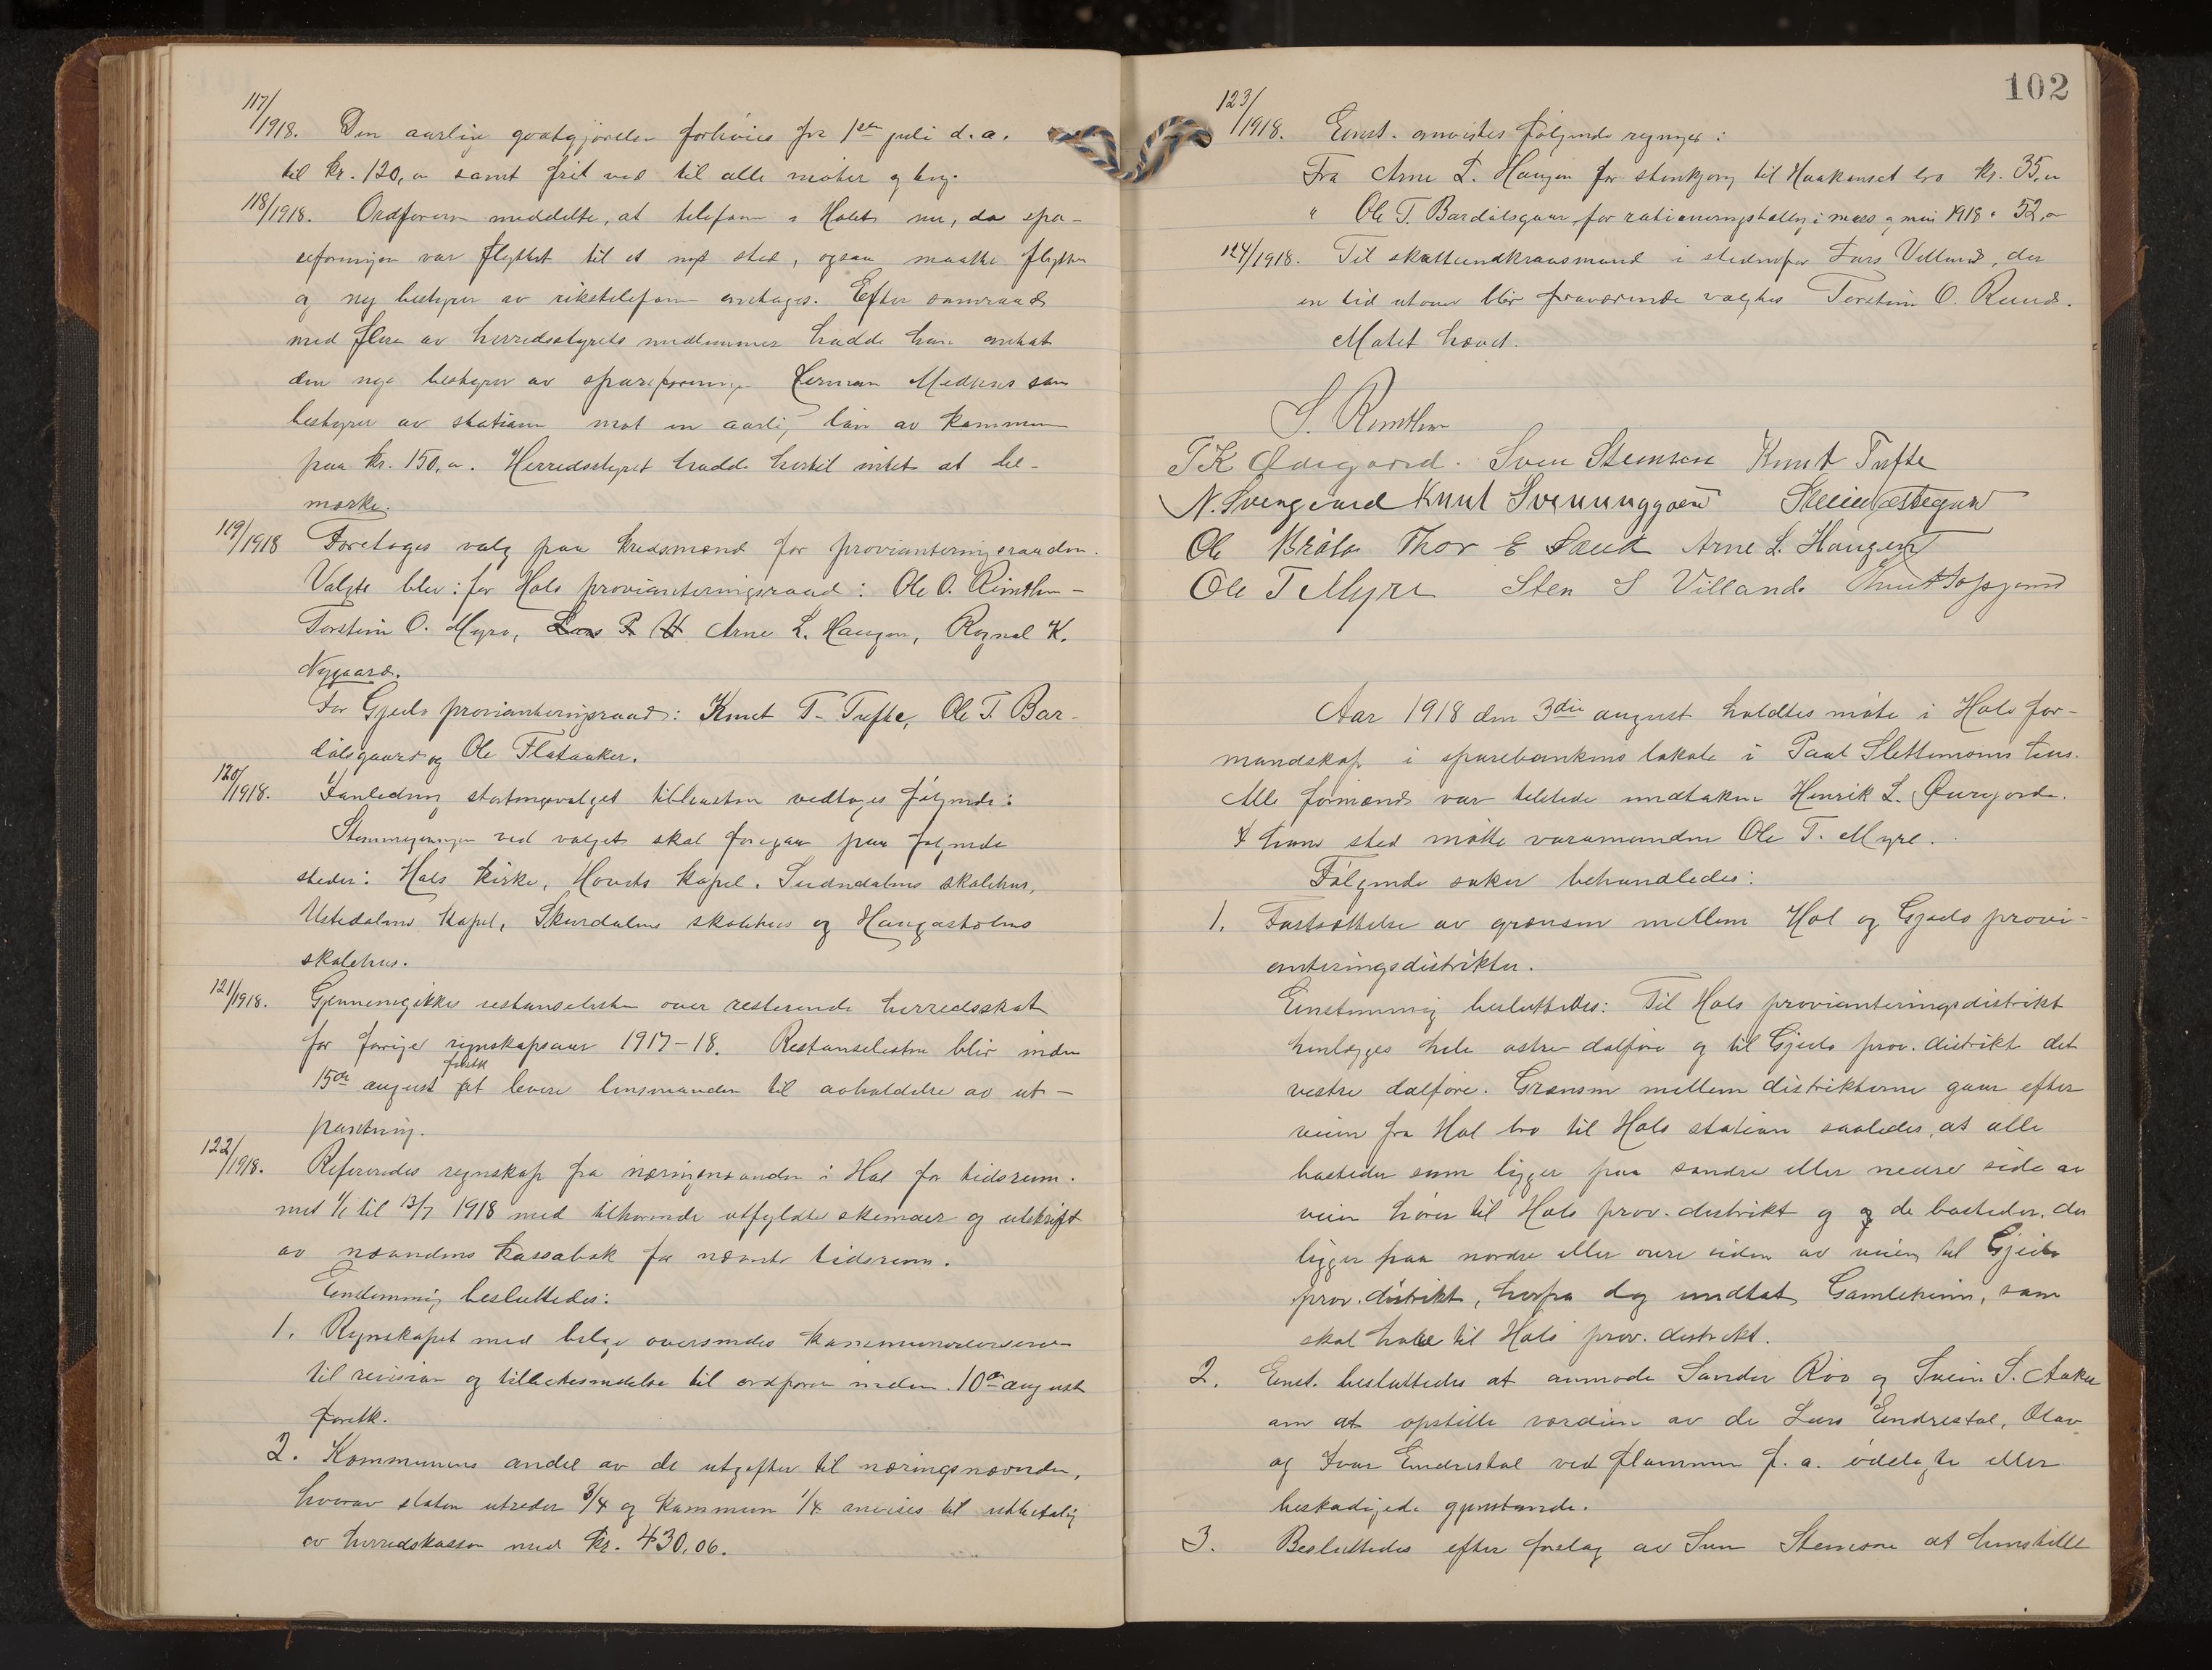 117/1918. Den aarlige godtgjørelse forhøies fra 1ste juli d.a.
til kr. 120,00 samt frit ved til alle møter
118/1918. Ordføreren meddelte, at telefonen i Holet nu, da spa-
reforeningen var flyttet til et nyt sted, ogsaa maatte flyttes
og ny bestyrer av rikstelefonen antages. Efter samraad
med flere av herredsstyrets medlemmer hadde han antat
den nye bestyrer av spareforeningen Herman Medhus som
bestyrer av stationen mot en aarlig løn av kommunen
paa kr. 150,00. Herredsstyret hadde hertil intet at be-
mærke.
119/1918 Foretoges valg paa kredsmænd for provianteringsraaden.
Valgte blev: for Hols provianteringsraad: Ole O. Rimthun -
Torstein O. Myro, Arne L. Haugen, Ragnal K.
Nygaard.
For Gjeilo provianteringsraad: Knut T. Tufte, Ole T. Bar-
dølsgaard og Ole Flataaker.
120/1918. I anledning stortingsvalget tilhøsten vedtoges følgende:
Stemmegivningen ved valget skal foregaa paa følgende
steder: Hols kirke, Hovets kapel, Sudndalens skolehus,
Ustedalens kapel, Skurdalens skolehus og Haugastølens
skolehus.
121/1918. Gjennemgikkes restanselisten over resterende herredsskat
for forrige regnskapsaar 1917-18. Restanselisten blir inden
førstk
15de august at levere lensmanden til avholdelse av ut-
pantning.
122/1918. Refereredes regnskap fra næringsnævnden i Hol for tidsrum-
met 1/1 til 13/7 1918 med tilhørende utfyldte skemaer og utskrift
av nævndens kassabok for nævnte tidsrum.
Enstemmig besluttedes:
1. Regnskapet med bilage oversendes kommunerevisoren
til revision og tilbakesendelse til ordfører inden 10de august
førstk.
2. Kommunens andel av de utgifter til næringsnævnden,
hvorav staten utreder 3/4 og kommunen 1/4 anvises til utbetaling
av herredskassen med kr. 430,06.
102
123/1918. Enst. anvistes følgende regninger:
Fra Arne L. Haugen for stenkjøring til Haakenset bro kr. 35,00
" Ole T. Bardølsgaar for rationeringstelling i mars og mai 1918 " 52,00
124/1918. Til skatteindkrævsmand i stedenfor Lars Villand, der
en tid utover blir fraværende valgtes Torstein O. Ruud.
Møtet hævet.
S. Rimthun
T K Ødegaard. Sven Stenson Knut Tufte
N. Svengaard Knut Svenunggaard Stein Østegaar
Ole Bråto Thor E Lauk Arne L. Haugen
Ole T Myre Sten S Villand.
Aar 1918 den 3die august holdtes møte i Hols for-
mandskap i sparebankens lokale i Paul Slettemoens hus.
Alle formænd var tilstede undtaken Henrik L. Øvregorde.
I hans sted møtte varamanden Ole T. Myre.
Følgende saker behandledes:
1. Fastsættelse av grænsen mellem Hol og Gjeilo provi-
anteringsdistrikter.
Einstemmig besluttedes: Til Hols provianteringsdistrikt
henlægges hele østre dalføre og til Gjeilo prov. distrikt det
vestre dalføre. Grænsen mellem distrikterne gaar efter
veien fra Hol bro til Hols station saaledes, at alle
bosteder som ligger paa søndre eller nedre side av
veien hører til Hols prov. distrikt og og de bosteder, der
ligger paa nordre eller øvre siden av veien til Gjeilo
prov. distrikt, herfra dog undtat Gamleheim, som
skal høre til Hols prov. distrikt.
2. Enst. besluttedes at anmode Sander Roo og Svein S. Aaker
om at opstille værdien av de Lars Eindrestøl, Olav
og Ivar Eindrestøl ved flommen f. a. ødelagte eller
beskadigede gjenstande.
3. Besluttedes efter forslag av Sven Stenson at henstille